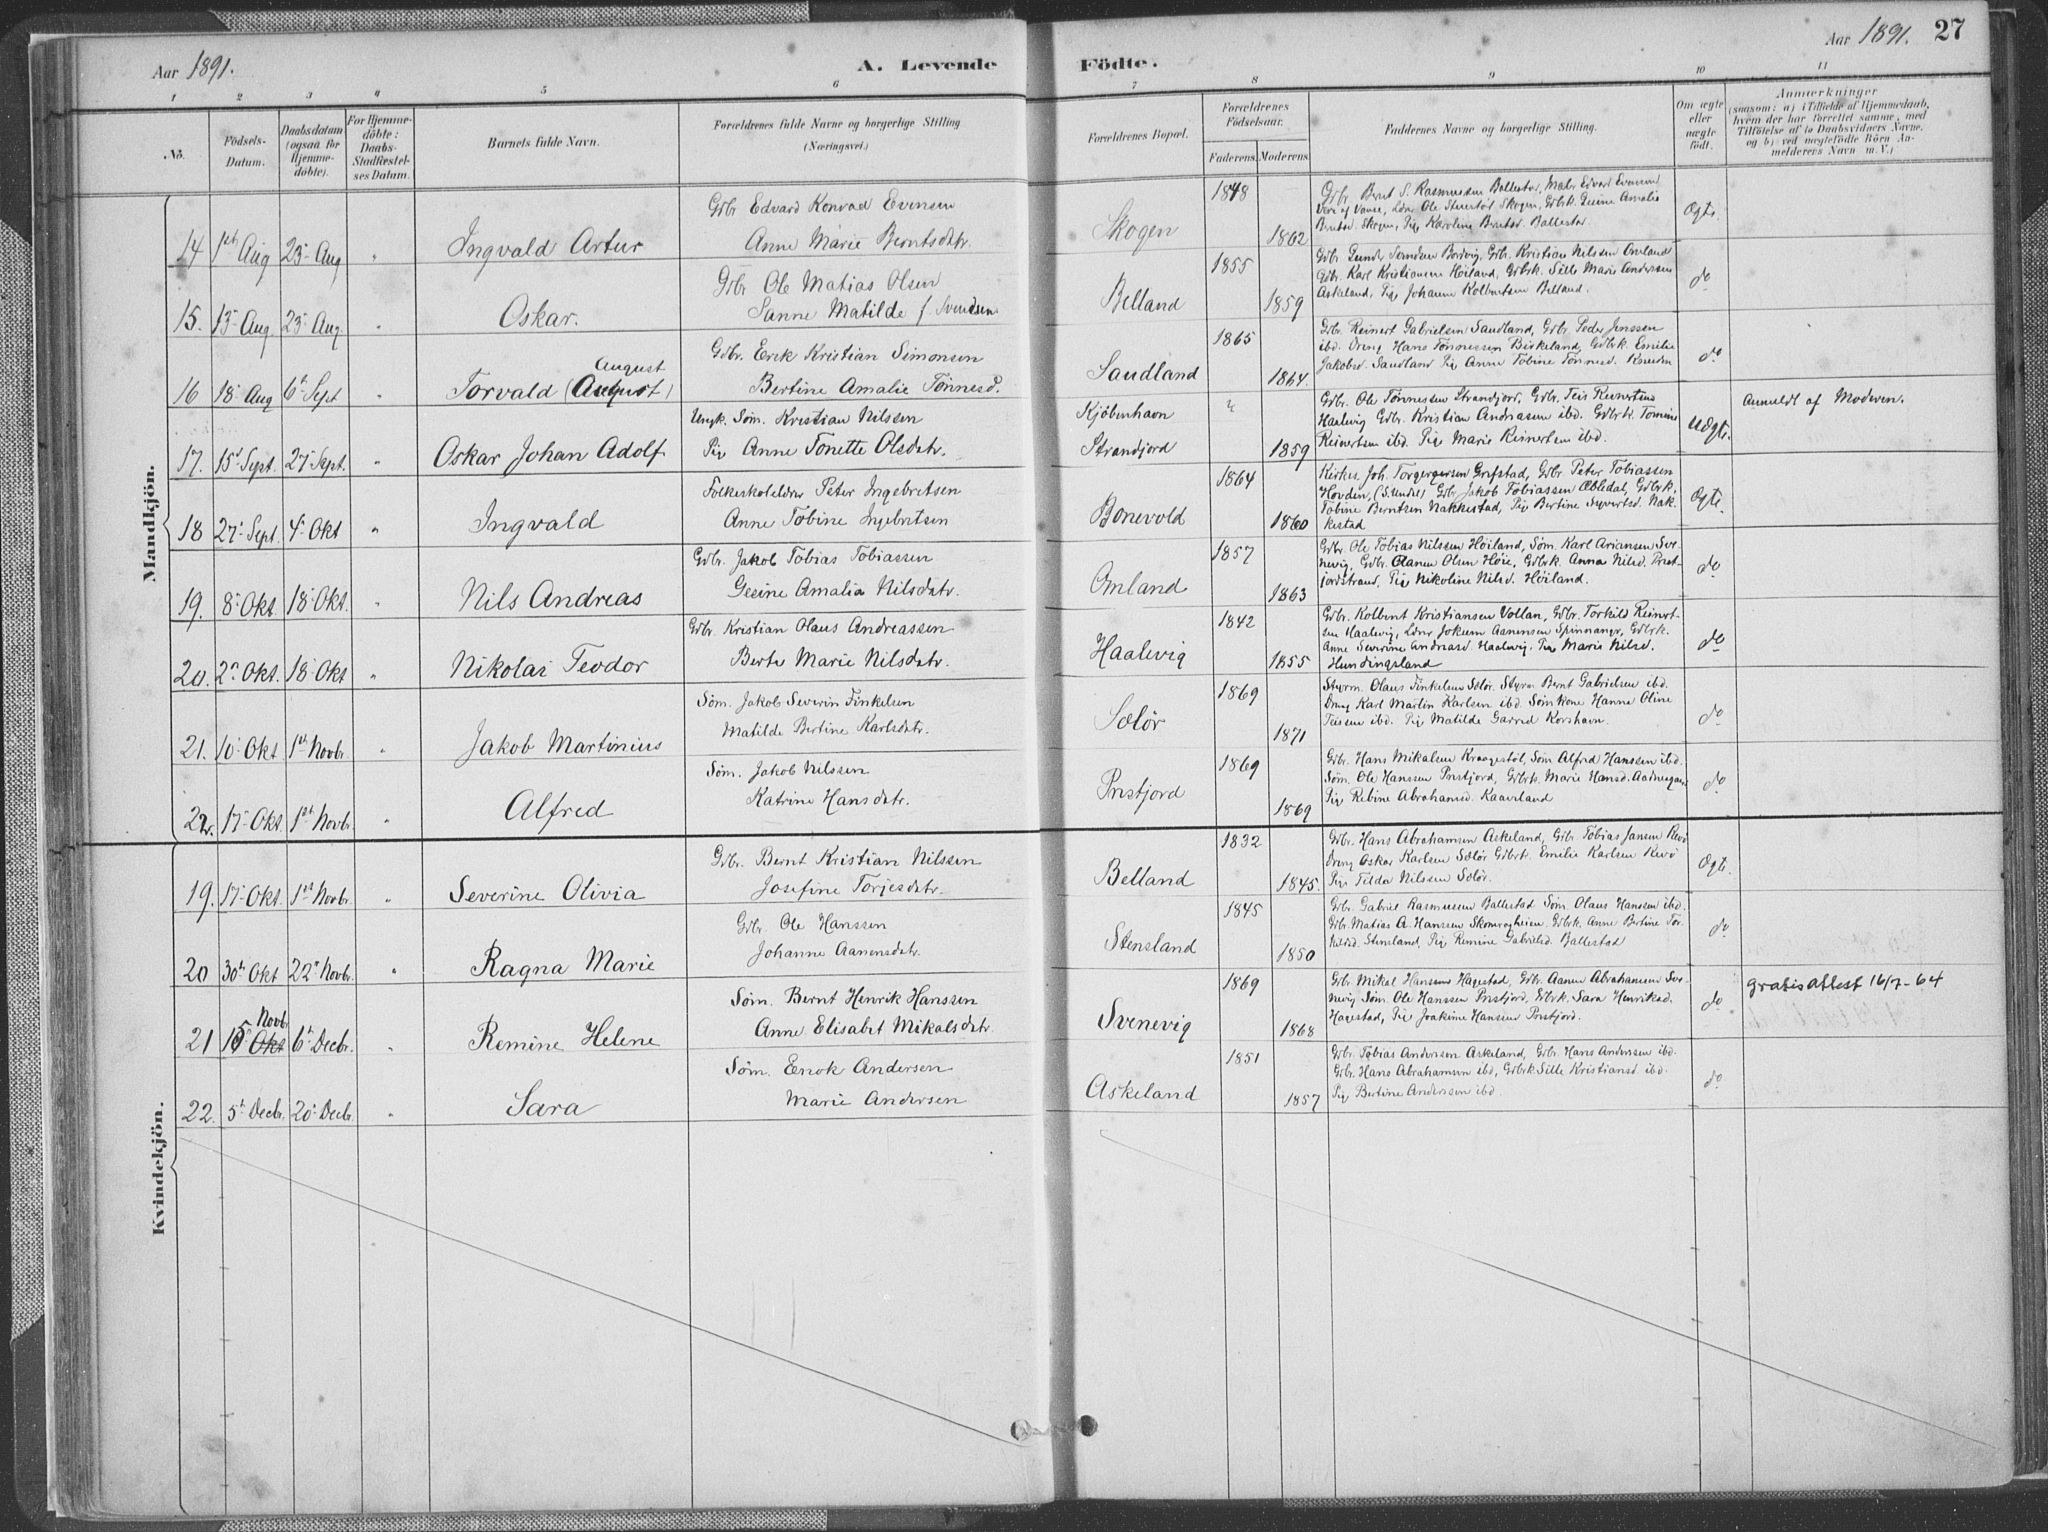 Aar 1891.
A. Levende
Födte.
Aar 1891.
27
1 2 3 4 5 6 7 8 9 10 11
No.
Födsels-
Datum.
Daabsdatum
(ogsaa for
Hjemme-
döbte).
For Hjemme-
döbte:
Daabs-
Stadfæstel-
ses Datum.
Barnets fulde Navn.
Forældrenes fulde Navne og borgerlige Stilling
(Næringsvei.)
Forældrenes Bopæl.
Forældrenes
Födselsaar.
Faderens. Moderens.
Faddernes Navne og borgerlige Stilling.
Om ægte
eller
uægte
født.
Anmærkninger
(saasom: a) i Tilfælde af Hjemmedaab,
hvem der har forrettet samme, med
Tilföielse af to Daabsvidners Navne,
og b) ved uægtefödte Börn An-
melderens Navn m. V.)
Mandkjön.
14 1st Aug 23 Aug " Ingvald Artur
Gbr Edvard Konrad Evensen
Anne Marie Berntsdtr.
Skogen 1848 1862
Gbr Bernt S. Rasmussen Ballestad, Edvard Evensen
Ole Skogen, Gbrk. Gesine Amalie
Skogen, Pig Karoline Berntsd. Ballestad.
Ægte.
15. 13 Aug 23 Aug " Oskar.
Gbr Ole Matias Olsen
Sanne Matilde f. Svendsen
Belland 1855 1859
Gbr Gunder Berdvig, Gbr. Kristian Nilsen Omland
Gbr. Karl Kristiansen Høiland, Gbrk. Sille Marie Anderssen
Askeland, Pig Johanne Kolbentsen Belland.
do
16 18 Aug 6t Sept " Torvald (August)
August
Gbr. Erik Kristian Simonsen
Bertine Amalie Tönnesd.
Sandland 1865 1864
Gbr. Reinert Gabrielsen Sandland, Gbr. Peder Jenssen
ibd. Dreng Hans Tönnessen Birkeland, Gbrk. Emilie
Jakobsd. Sandland Pig Anne Tobine Tønnesd.
do
17. 15 Sept. 27 Sept. " Oskar Johan Adolf
Ungk. Søm. Kristian Nilsen
Pig Anne Tonette Olsdatr.
Kjöbenhavn
Strandfjord 1859
Gbr. Ole Tønnessen Strandfjord, Gbr. Teis Reinertsen
Haalevig Gbr. Kristian Andreassen ibd. Gbrk. Tomine
Reinertsen ibd. Pig Marie Reinertsen ibd.
Uægte.
Anmeldt af Moderen.
18 27 Sept. 4 Okt " Ingvald
Folkeskolelærer Peter Ingebretsen
Anne Tobine Ingebretsen
Bonevold 1864 1860
Kirkes. Joh. Torgersen Grifstad, Gbr. Peter Tobiassen
Hovden, (S. Undal) Gbr Jakob Tobiassen Ødedal, Gbrk.
Tobine Berntsen Nakkestad, Pig Bertine Syvertsd. Nak-
kestad
Ægte.
19. 8 Okt. 18 Okt. " Nils Andreas
Gbr. Jakob Tobias Tobiassen
Gesine Amalia Nilsdatr.
Omland 1857 1863
Gbr. Ole Tobias Nilssen Høiland, Søm. Karl Ariansen Sve-
nevig, Gbr. Olsen Høie, Gbrk. Anna Nilsd. Prest-
jordstrand, Pig Nikoline Nilsd. Høiland.
do
20. 2 Okt. 18 Okt " Nikolai Teodor
Gbr. Kristian Olaus Andreassen
Berte Marie Nilsdatr.
Haalevig 1842 1855
Gbr. Kolbent Kristiansen Vollan, Gbr. Torkild Reinert-
sen Haalevig, Ldnr Jokum Aanensen Spinnanger, Gbrk.
Anne Severine Andreasd. Haalevig, Pig Marie Nilsd.
Hundingsland
do
21. 10 Okt 1st Novbr. " Jakob Martinius
Søm. Jakob Severin Finkelsen
Matilde Bertine Karlsdatr.
Sælör 1869 1871
Styrm. Olaus Finkelsen Sælør. Styrm. Bernt Gabrielsen ibd.
Dreng Karl Martin Karlsen ibd Sømkone Hanne Oline
Teissen ibd. Pig Matilde Korshavn.
do
22. 17 Okt. 1st Novbr. " Alfred
Søm. Jakob Nilssen
Katrine Hansdatr.
Prestjord 1869 1869
Gbr. Hans Mikalsen Kraagestøl, Søm Alfred Hanssen ibd.
Søm. Ole Hanssen Prestjord, Gbrk. Marie Hansd.
Pig Rebine Abrahamsd. Kaaveland
do
Kvindekjön.
19. 17 Okt. 1st Novbr. " Severine Olivia
Gbr. Bernt Kristian Nilssen
Josefine Torjesdatr.
Belland 1832 1845.
Gbr. Hans Abrahamsen Askeland, Gbr. Tobias Jansen Revö
Dreng Oskar Karlsen Sælør Gbrk. Emilie Karlsen Revö
Pig Tilda Nilssen Sælør.
Ægte.
20 30t Okt 22 Novbr. " Ragna Marie
Gbr. Ole Hanssen
Johanne Aanensdatr.
Stensland 1845 1850
Gbr. Gabriel Rasmussen Ballestad Søm. Olaus Hanssen ibd.
Gbr. Matias A. Hanssen Skomragheien, Gbrk. Anne Bertine Tor-
kildsd. Stensland, Pig Remine Gabrielsd. Ballestad
do
21 15 Okt Novbr 6t Decbr. " Remine Helene
Søm. Bernt Henrik Hanssen
Anne Elisabet Mikalsdatr.
Svenevig 1869 1868
Gbr. Mikal Hanssen Hagestad, Gbr. Aanen Abrahamsen Sve-
nevig Søm. Ole Hanssen Prestjord, Gbrk. Sara Henriksd.
Hagestad, Pig Joakime Hanssen Prestjord.
do
gratisattest 16/7-64
22. 5t Decbr. 20 Decbr. " Sara
Søm. Enok Andersen
Marie Andersen
Askeland 1851 1857
Gbr. Tobias Anderssen Askeland, Gbr. Hans Anderssen ibd.
Gbr. Hans Abrahamsen ibd, Gbrk Sille Kristiansd. ibd.
Pig Bertine Anderssen ibd.
do